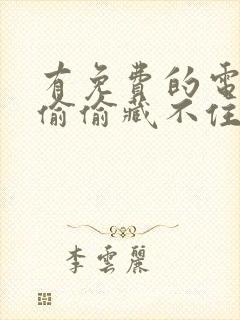 有免費的電
偷偷藏不住
李雲麗